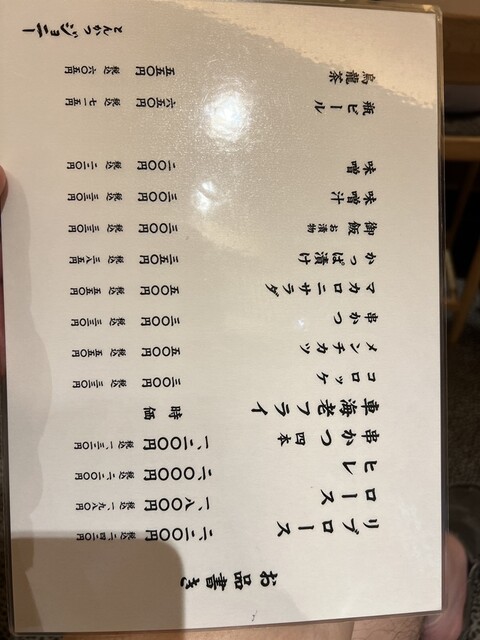 お品書き
リブロース 二、二〇〇円 税込 二、四二〇円
ロース 一、八〇〇円 税込 一、九八〇円
ヒレ 二、〇〇〇円 税込 二、二〇〇円
串かつ 四本 一、二〇〇円 税込 一、三二〇円
車海老フライ 時価
コロッケ 三〇〇円 税込 三三〇円
メンチカツ 五〇〇円 税込 五五〇円
串かつ 三〇〇円 税込 三三〇円
マカロニサラダ 五〇〇円 税込 五五〇円
かっぱ漬け 三五〇円 税込 三八五円
御飯 お漬物 三〇〇円 税込 三三〇円
味噌汁 三〇〇円 税込 三三〇円
味噌 二〇〇円 税込 二二〇円
瓶ビール 六五〇円 税込 七一五円
烏龍茶 五五〇円 税込 六〇五円
とんかつジョニー